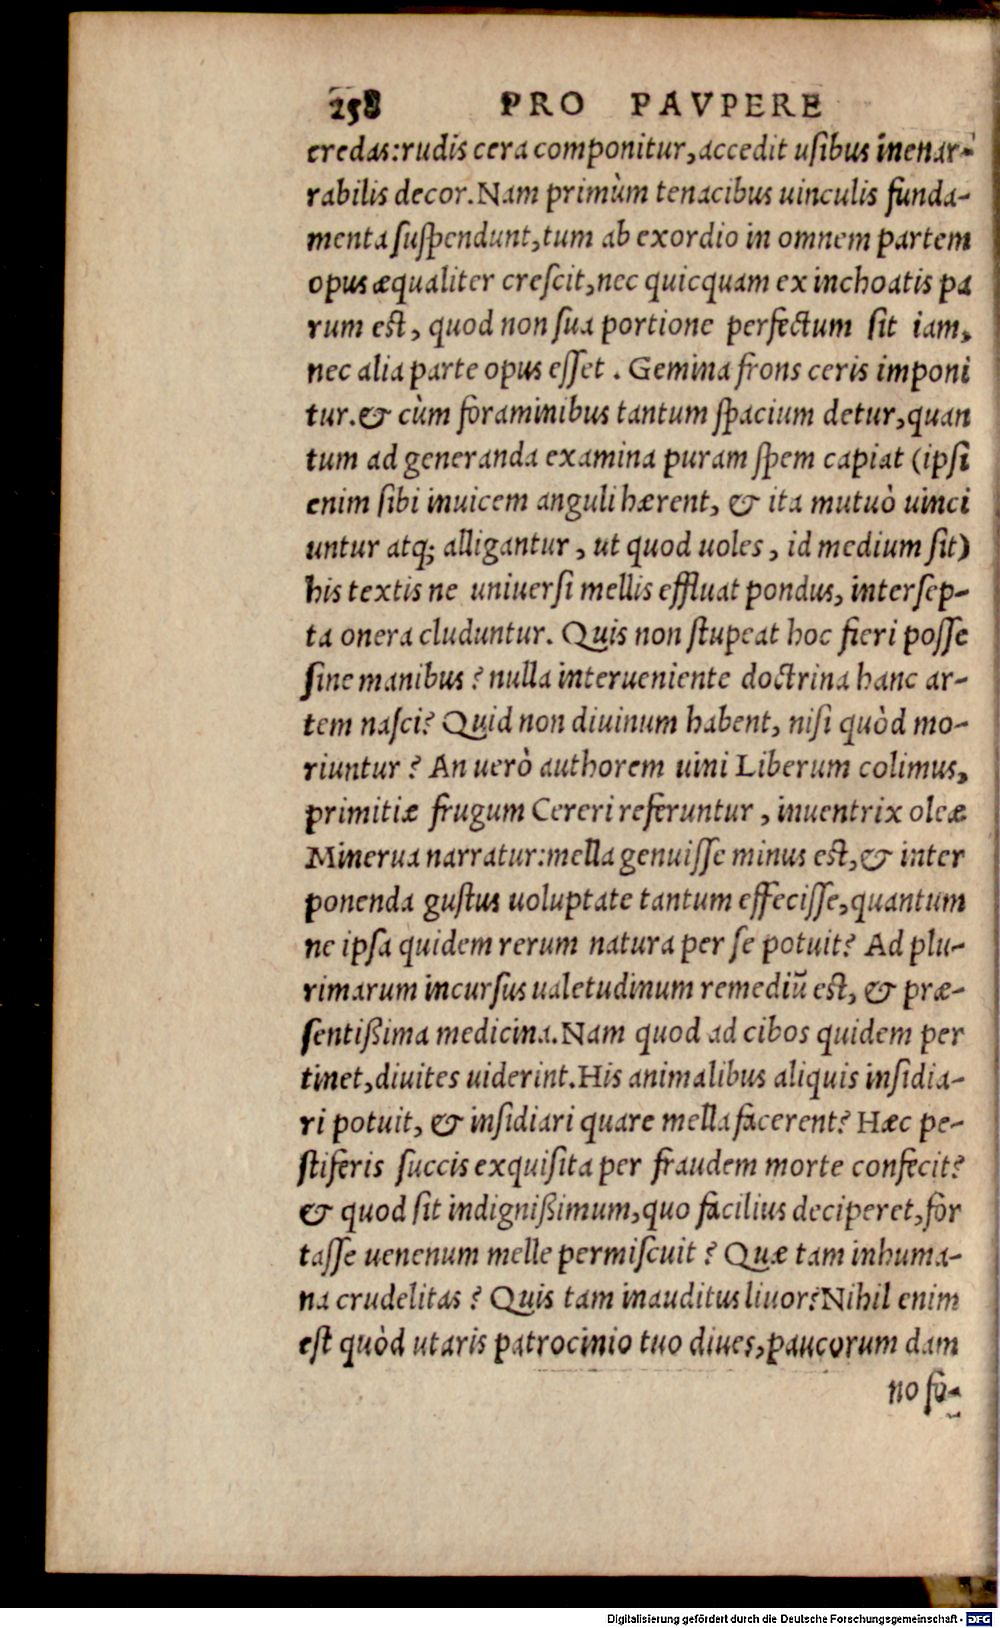 258 PRO PAVPERE
credas: rudis cera componitur, accedit usibus inenar-
rabilis decor. Nam primùm tenacibus uinculis funda-
menta suspendunt, tum ab exordio in omnem partem
opus æqualiter crescit, nec quicquam ex inchoatis pa
rum est, quod non sua portione perfectum sit iam,
nec alia parte opus esset. Gemina frons ceris imponi
tur. & cùm foraminibus tantum spacium detur, quan
tum ad generanda examina puram spem capiat (ipsi
enim sibi inuicem anguli hærent, & ita mutuò uinci
untur atq; alligantur, ut quod uoles, id medium sit)
his textis ne uniuersi mellis effluat pondus, intersep-
ta onera cluduntur. Quis non stupeat hoc fieri posse
sine manibus? nulla interueniente doctrina hanc ar-
tem nasci? Quid non diuinum habent, nisi quòd mo-
riuntur? An uerò authorem uini Liberum colimus,
primitiæ frugum Cereri referuntur, inuentrix oleæ
Minerua narratur: mella genuisse minus est, & inter
ponenda gustus uoluptate tantum effecisse, quantum
ne ipsa quidem rerum natura per se potuit? Ad plu-
rimarum incursus ualetudinum remediū est, & præ-
sentißima medicina. Nam quod ad cibos quidem per
tinet, diuites uiderint. His animalibus aliquis insidia-
ri potuit, & insidiari quare mella facerent? Hæc pe-
stiferis succis exquisita per fraudem morte confecit?
& quod sit indignißimum, quo facilius deciperet, for
tasse uenenum melle permiscuit? Quæ tam inhuma-
na crudelitas? Quis tam inauditus liuor? Nihil enim
est quòd utaris patrocinio tuo diues, paucorum dam
no so-
Digitalisierung gefördert durch die Deutsche Forschungsgemeinschaft - DFG